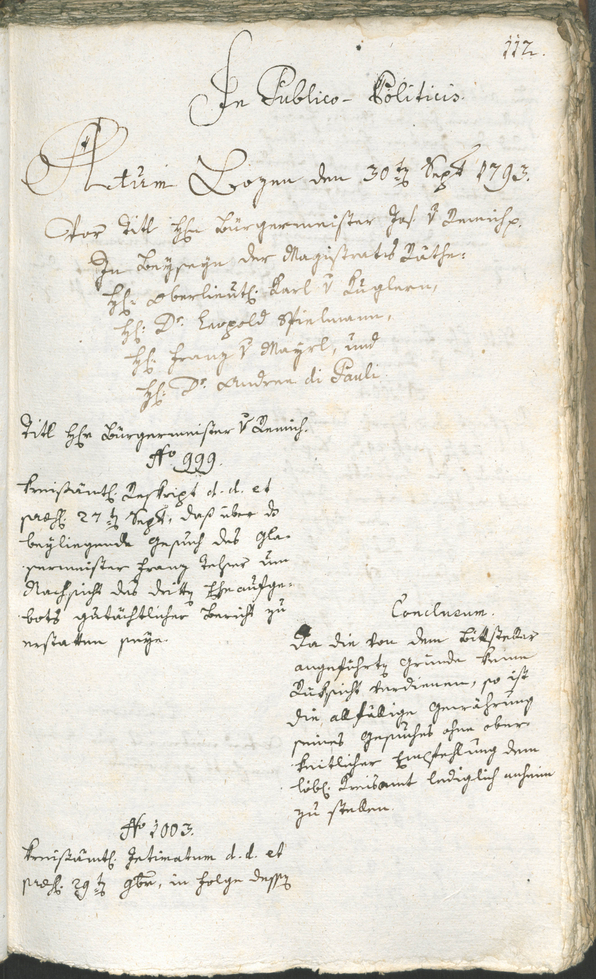 112.
In Publico-Politicis.
Actum Bozen den 30ten Sept 1793.
Vor Titl Hrn Bürgermeister Jos. v Remich p.
In Beyseyn der Magistrats Räthe:
HH: Oberlieut: Karl v Kuglern,
HH: Dr. Leopold Spielmann,
HH: Franz v Mayrl, und
HH: Dr. Andreæ di Pauli
Titl Hr Bürgermeister v Remich.
No 999.
Kreisämtl. Reskript d. d. et
præs: 27ten Sept, daß über das
beyliegende Gesuch des Gla-
sermeister Franz um
Nachsicht des dritten Eheaufge-
bots gutächtlicher Bericht zu
erstatten seye.
Conclusum.
Da die von dem Bittsteller
angeführten Gründe keine
Rücksicht verdienen, so ist
die allfällige Gewährung
seines Gesuches ohne obrig-
keitlicher Empfehlung dem
löbl. Kreisamt lediglich anheim
zu stellen.
No 1003.
Kreisämtl. Intimatum d. d. et
præs: 29ten 7bris, in Folge dessen